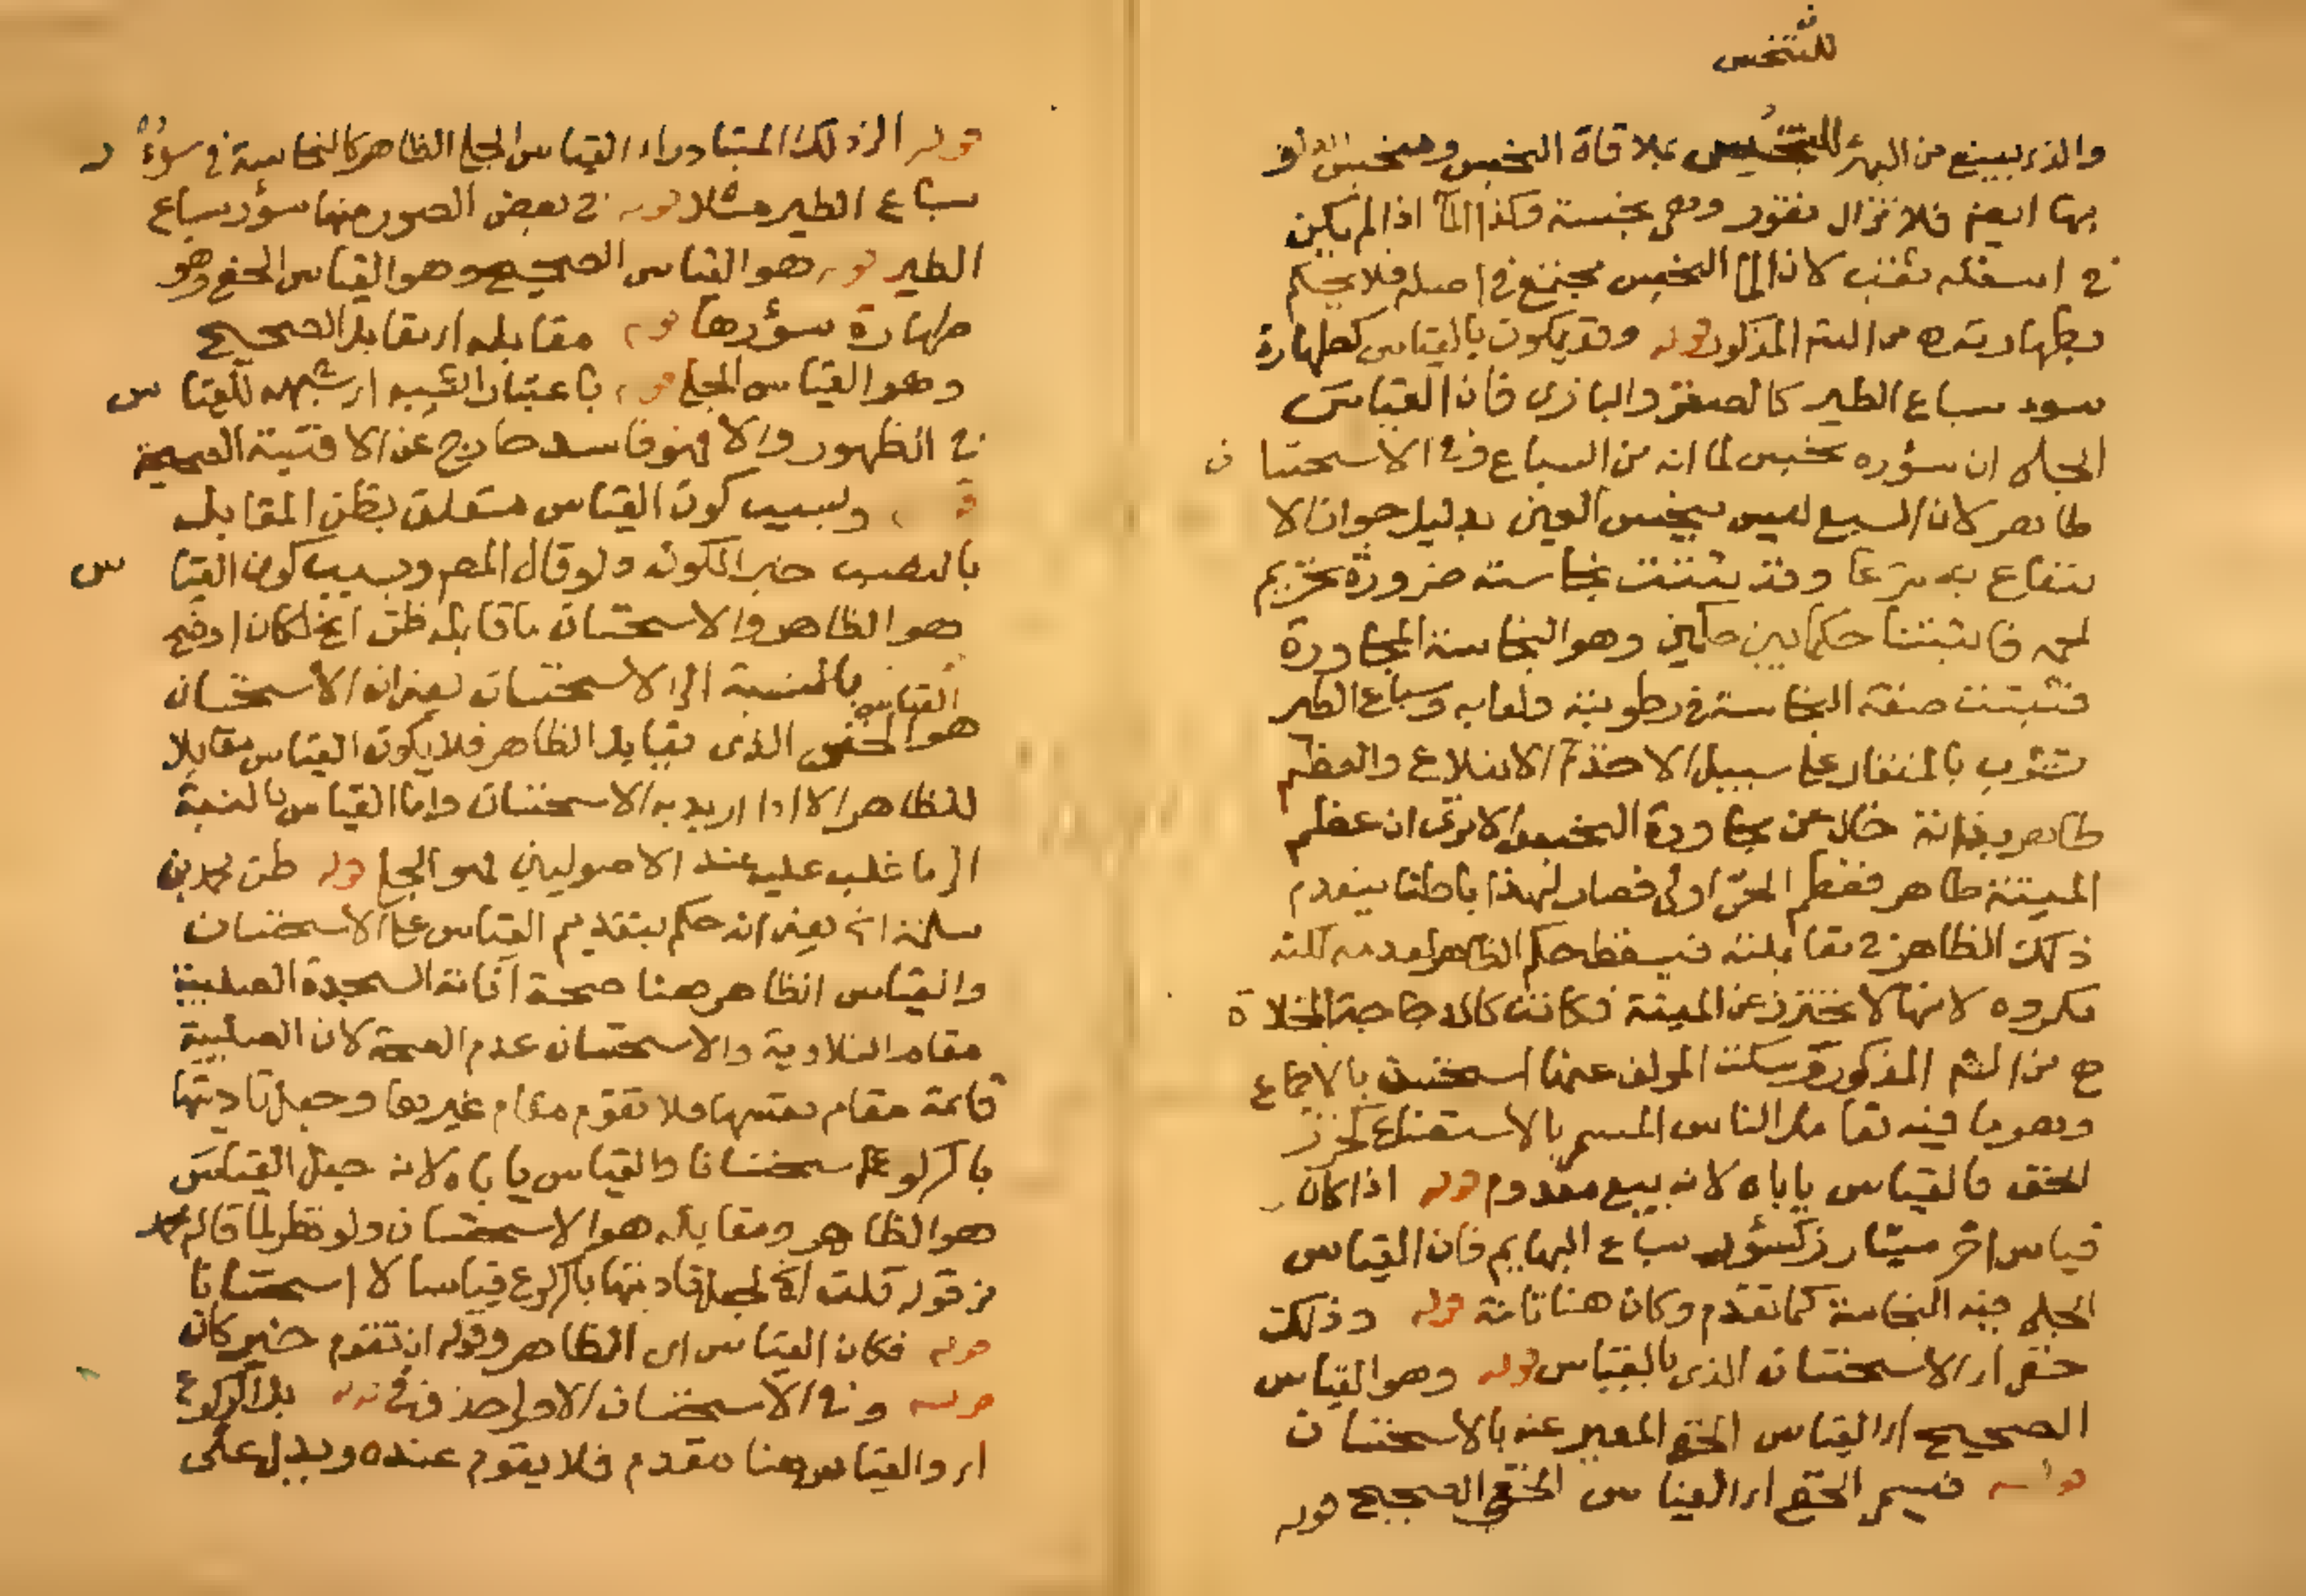 للتنجس
والذي ينبع من البير للتنجيس بملاقاة النجس وينجس الدلو
بها ايضا فلا تزال تفور وهي نجسة وكذا الماء اذا لم يكن
في اسفله ثقب لان الماء النجس مجتمع في اصله فلا يحكم
بطهارته ص من السنة المذكورة قوله وقد يكون بالقياس كطهارة
سور سباع الطير كالصقر والبازي فان القياس
الجلي ان سؤره نجس لما انه من السباع وفي الاستحسان
طاهر لان السبع ليس بنجس العين بدليل جواز الا
نتفاع به شرعا وقد يثبت نجاسته ضرورة تحريم
لحمه فاثبتنا حكما بين حكمين وهو النجاسة المجاورة
فثبتت صفة النجاسة في رطوبته ولعابه وسباع الطير
تشرب بالمنقار على سبيل الاخذ ثم الابتلاع والعظم
طاهر بذاته خال عن مجاورة النجس الا ترى ان عظم
الميتة طاهر فعظم الحي اولى فصار لهذا باطنا ينعدم
ذلك الظاهر في مقابلته فيسقط حكم الظاهر لعدمه لكنه
مكروه لانها لا تحترز عن الميتة فكانت كالدجاجة المخلاة
ح من السنة المذكورة وسكت المولف عما استحسن بالاجماع
وهو ما فيه تعامل الناس المسمى بالاستصناع كخرز
الخف فالقياس ياباه لانه بيع معدوم قوله اذا كان
قياس اخر متبادر كسؤر سباع البهايم فان القياس
الجلي فيه النجاسة كما تقدم وكان هنا تامة قوله وذلك
خفي اي الاستحسان الذي بالقياس قوله وهو القياس
الصحيح اي القياس الخفي المعبر عنه بالاستحسان
قوله فسمي الخفي اي القياس الخفي الصحيح قوله
قوله الى ذلك المتبادر اي القياس الجلي الظاهر كالنجاسة في سؤر
سباع الطير مثلا قوله في بعض الصور منها سؤر سباع
الطير قوله هو القياس الصحيح وهو القياس الخفي وهو
طهارة سؤرها قوله مقابله اي يقابل الصحيح
وهو القياس الجلي قوله باعتبار الشبه اي شبهه للقياس
في الظهور والا فهو فاسد خارج عن الاقيسة الصحيحة
وبسبب كون القياس متعلق بظن المقابل
بالنصب خبر الكون ولو قال المص وبسبب كون القياس
هو الظاهر والاستحسان ما قابله ظن الخ لكان اوضح
القياس بالنسبة الى الاستحسان يعني ان الاستحسان
هو الخفي الذي يقابل الظاهر فلا يكون القياس مقابلا
للظاهر الا اذا اريد به الاستحسان واما القياس بالنسبة
الى ما غلب عليه عند الاصوليين فهو الجلي قوله ظن محمد بن
سلمة الخ يعني انه حكم بتقديم القياس على الاستحسان
والقياس الظاهر هنا صحة اقامة السجدة الصلبية
مقام التلاوية والاستحسان عدم الصحة لان الصلبية
قائمة مقام نفسها فلا تقوم مقام غيرها وجعل تاديتها
بالركوع استحسانا والقياس ياباه لانه جعل القياس
هو الظاهر ومقابله هو الاستحسان ولو نظر لما قاله محمد
من قوله قلت الخ لجعل تاديتها بالركوع قياسا لا استحسانا
قوله فكان القياس اي الظاهر وقوله ان تقوم خبر كان
قوله وفي الاستحسان الاولى حذف في قوله بل الركوع
اي والقياس هنا مقدم فلا يقوم عنده ويدل على